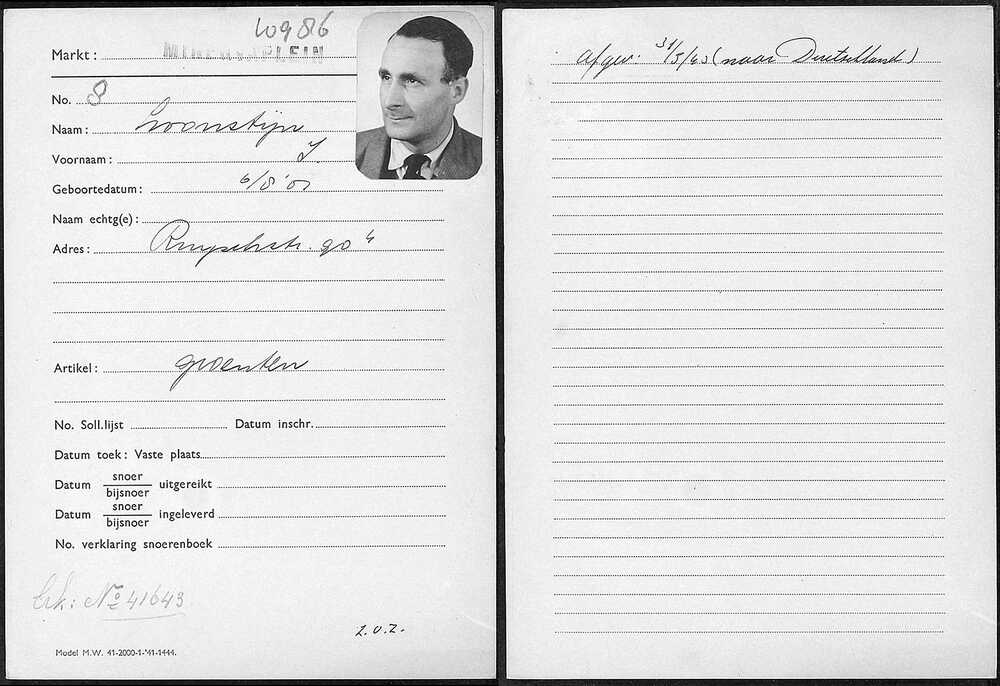 10986
Markt: MINERVAPLEIN
No. 8
Naam: Loonstijn
Voornaam: I.
Geboortedatum: 6/8'01
Naam echtg(e):
Adres: Ruyschstr. 90 4
Artikel: groenten
No. Soll.lijst Datum inschr.
Datum toek: Vaste plaats
Datum snoer/bijsnoer uitgereikt
Datum snoer/bijsnoer ingeleverd
No. verklaring snoerenboek
No 41643
z.o.z.
Model M.W. 41-2000-1-'41-1444.
afgev. 31/5/43 (naar Duitschland)